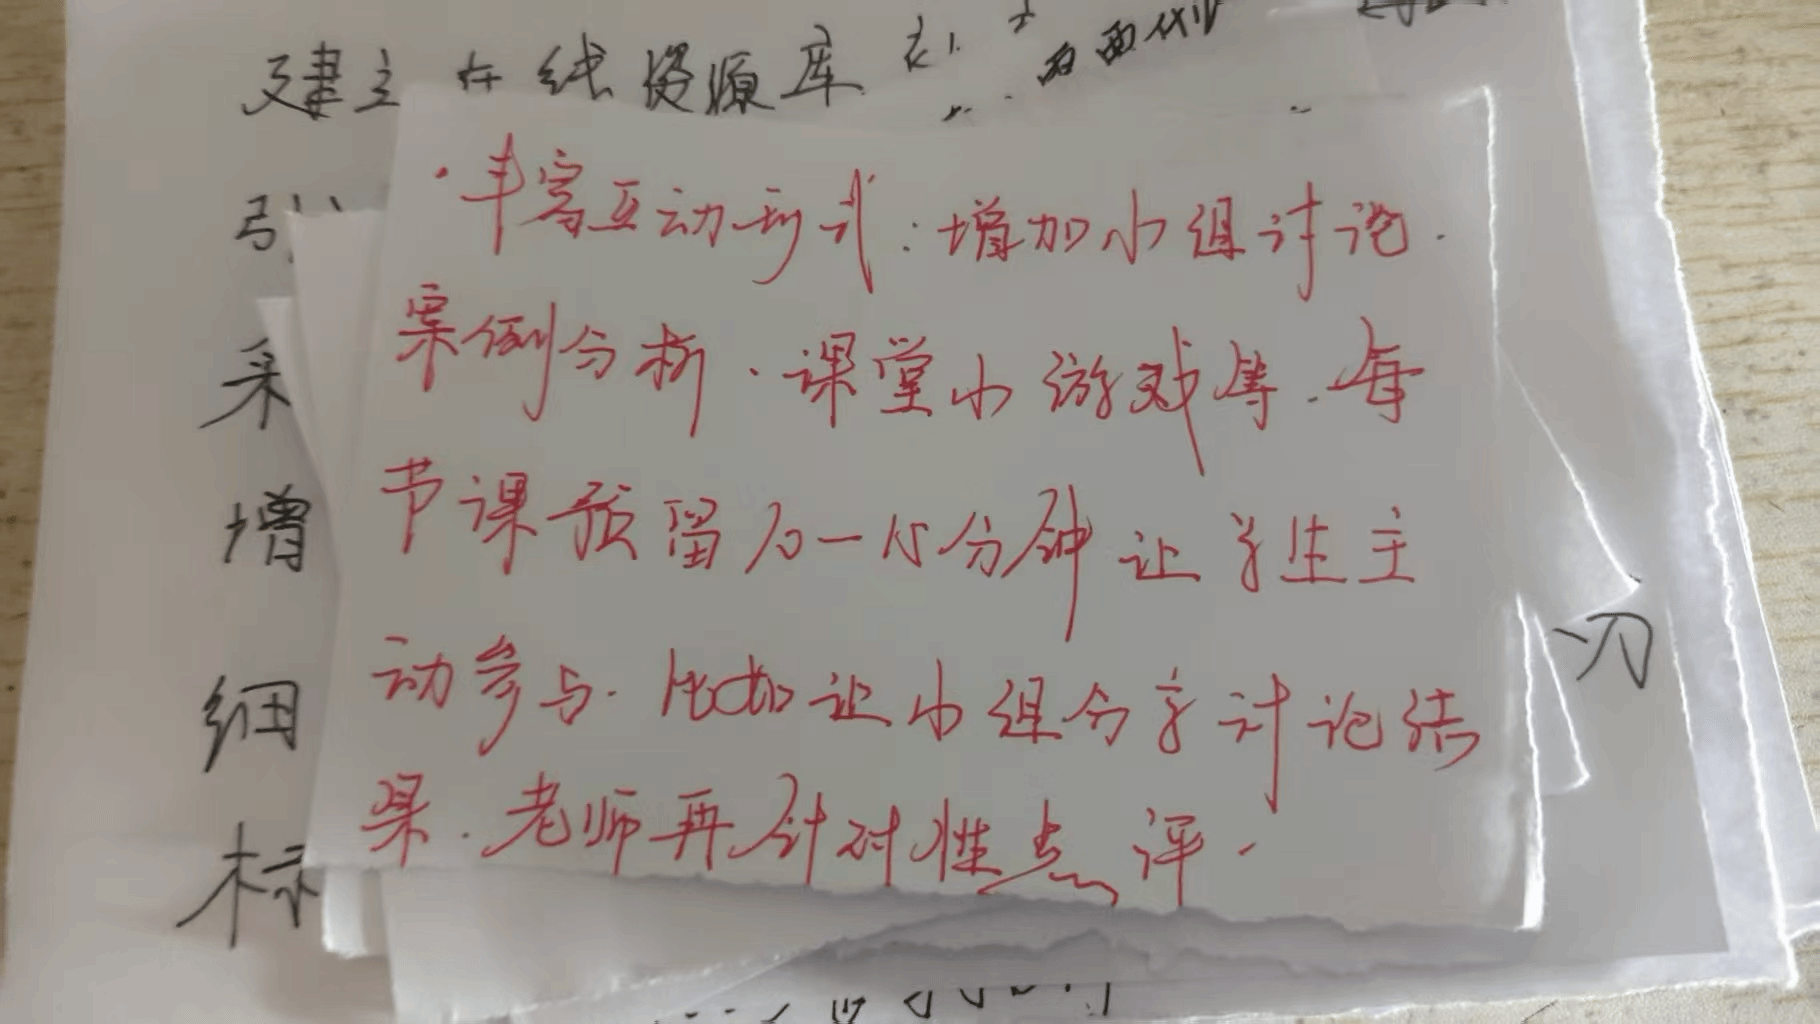 建立在线资源库
·丰富互动形式：增加小组讨论.
案例分析.课堂小游戏等.每
节课预留10-15分钟让学生主
动参与.比如让小组分享讨论结
果.老师再针对性点评.
采
增
细
切
标